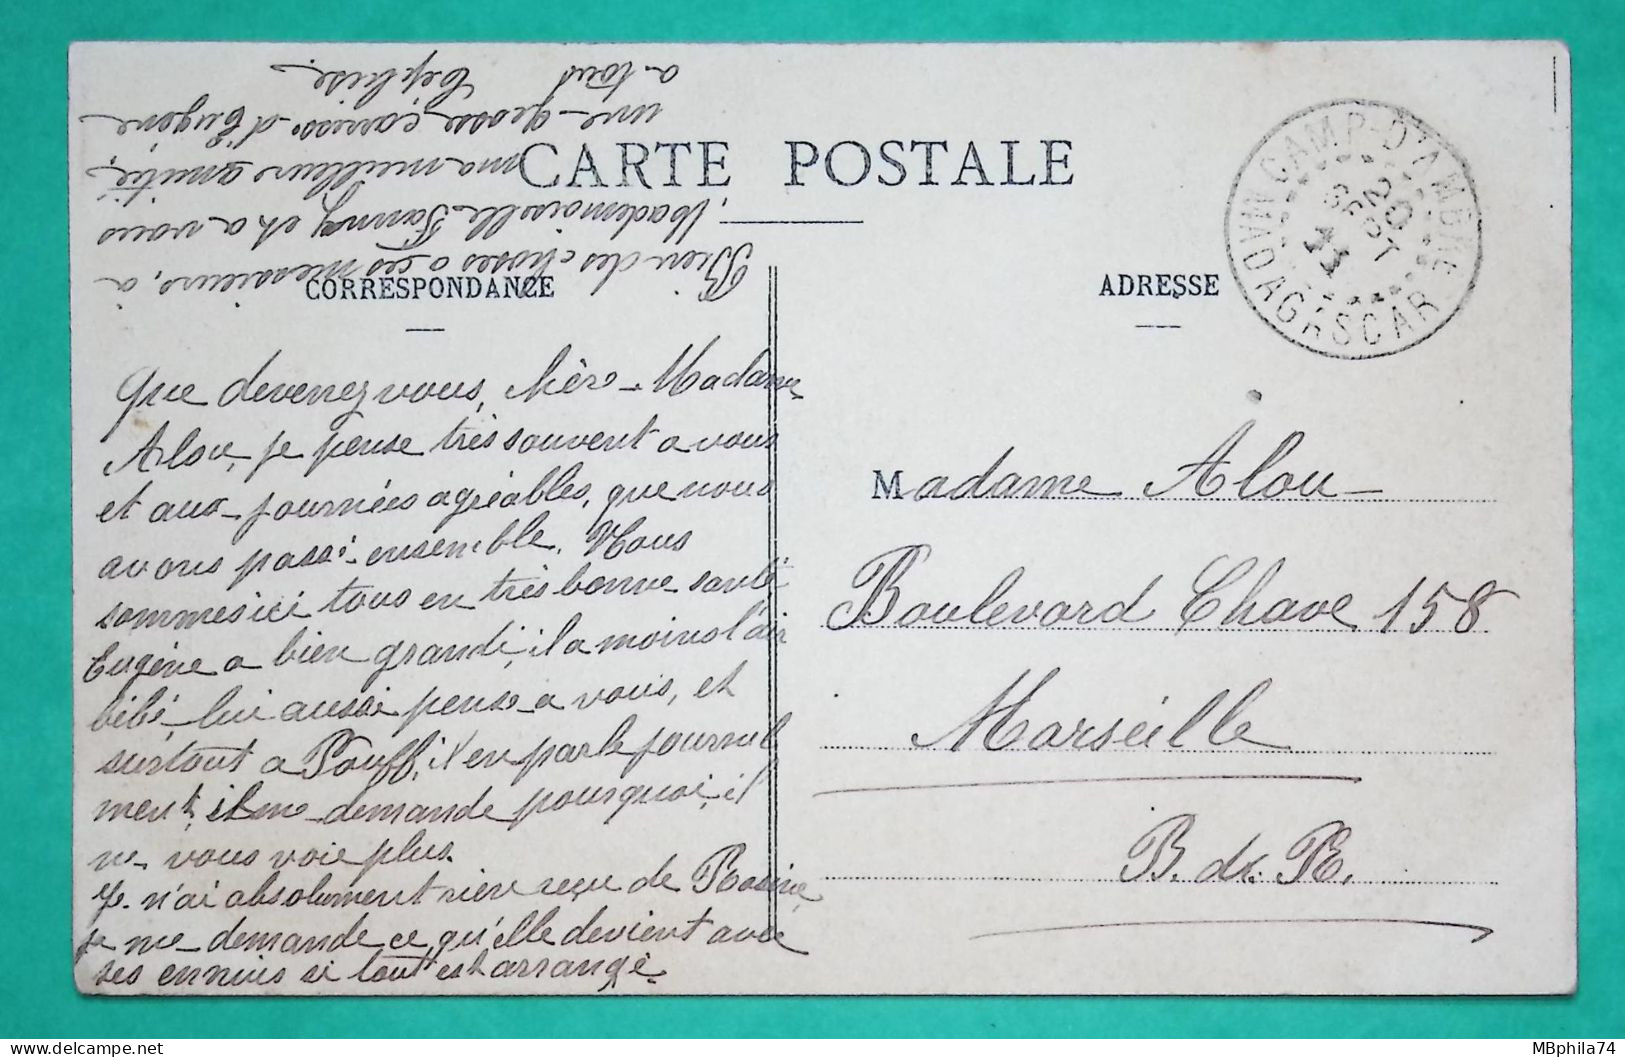 CARTE POSTALE
CORRESPONDANCE
ADRESSE
CAMP-D'AMBRE
20
SEPT
11
MADAGASCAR
Que devenez vous, chère Madame
Alou, je pense très souvent a vous
et aux journées agréables, que nous
avons passé ensemble. Nous
sommes ici tous en très bonne santé
Eugène a bien grandi, il a moins l'air
bébé, lui aussi pense a vous, et
surtout a Pouff, il en parle journel
ment, il me demande pourquoi, il
ne vous voie plus.
Je n'ai absolument rien reçu de Rosine,
je me demande ce qu'elle devient avec
ses ennuis si tout est arrangé.
Bien des choses a ces messieurs, a
Mademoiselle Fanny et a vous
ma meilleure amitié,
une grosse caresse d'Eugène
a tous
Céphise.
Madame Alou
Boulevard Chave 158
Marseille
B. du R.
MBphila74